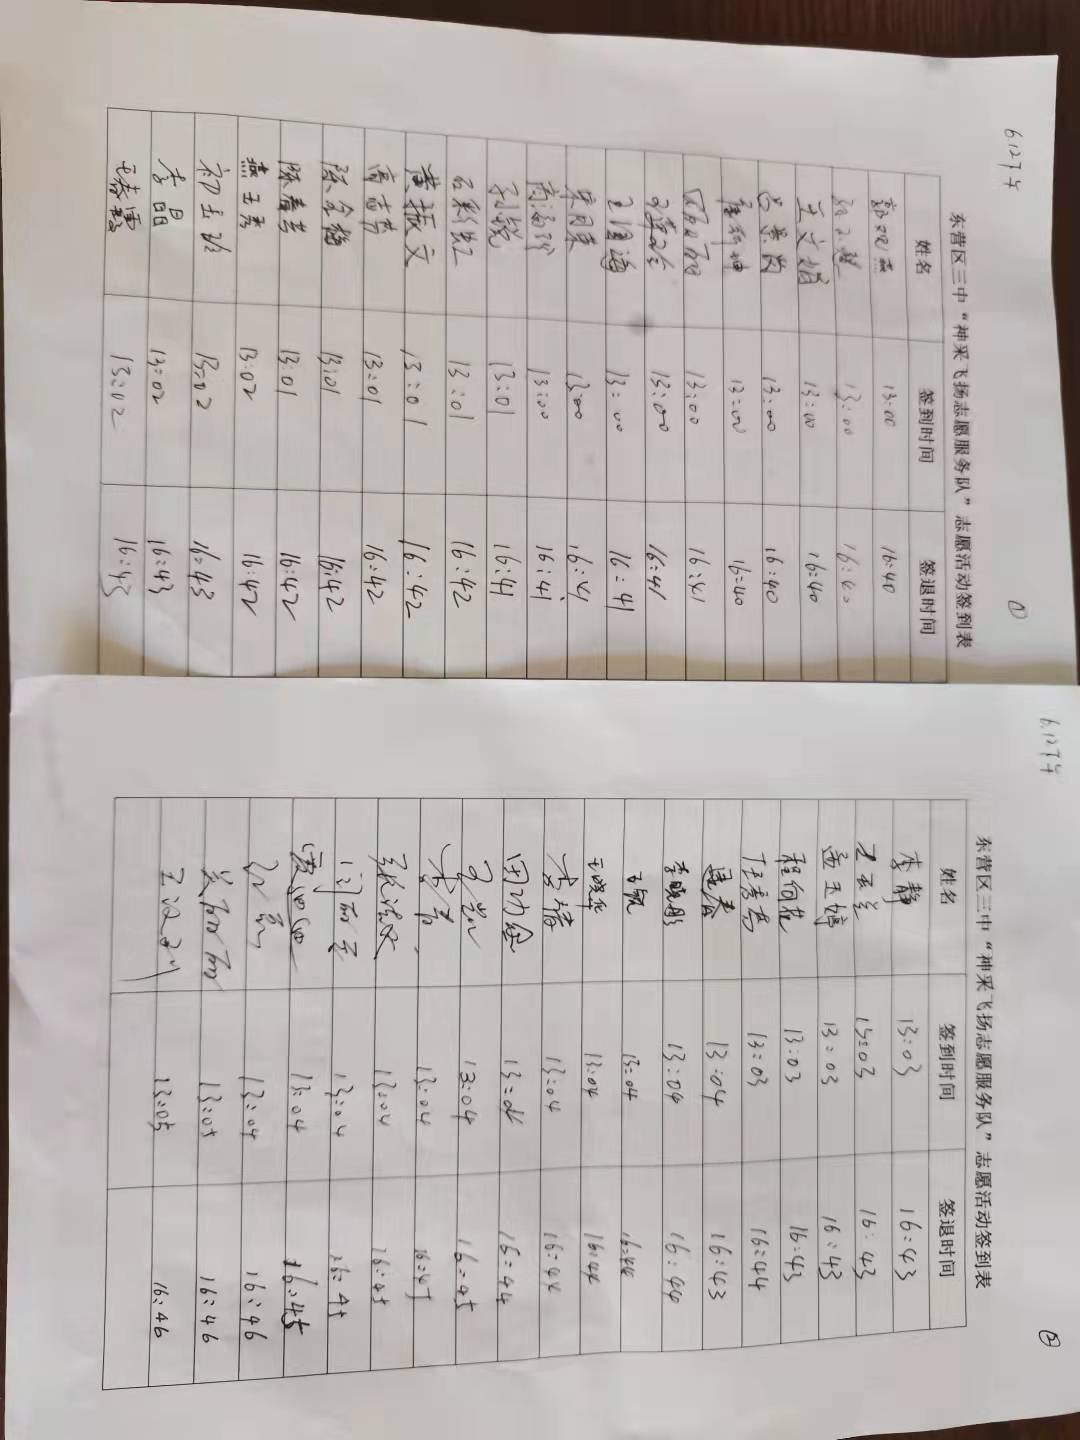 6.12下午
①
东营区三中“神采飞扬志愿服务队”志愿活动签到表
姓名 签到时间 签退时间
13:00 16:40
13:00 16:40
王文娟 13:00 16:40
吕景岗 13:00 16:40
13:00 16:40
13:00 16:41
13:00 16:41
13:00 16:41
宋月东 13:00 16:41
13:00 16:41
13:01 16:41
石彩虹 13:01 16:42
黄振文 13:01 16:42
13:01 16:42
陈金梅 13:01 16:42
陈春芳 13:01 16:42
燕玉秀 13:02 16:42
初玉珍 13:02 16:43
李晶 13:02 16:43
13:02 16:43
6.12下午
②
东营区三中“神采飞扬志愿服务队”志愿活动签到表
姓名 签到时间 签退时间
李静 13:03 16:43
王玉兰 13:03 16:43
孟玉婷 13:03 16:43
程向花 13:03 16:43
任秀芳 13:03 16:44
13:04 16:43
李晓彤 13:04 16:44
王敏 13:04 16:44
王晓华 13:04 16:44
李倩 13:04 16:44
田功金 13:04 16:44
13:04 16:45
13:04 16:45
张洪文 13:04 16:45
闫丽至 13:04 16:45
13:04 16:45
13:04 16:46
吴丽丽 13:05 16:46
王汉利 13:05 16:46